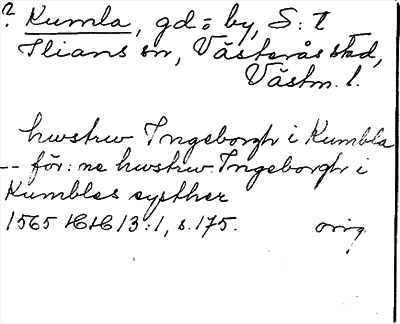 ? Kumla, gd = by, S:t
Ilians sn, Västerås stad,
Västm. l.
hwstrw Ingeborgh i Kumbla
-- för:ne hwstrw Ingeborgh i
Kumbles systher
1565 HH 13:1, s. 175. orig.